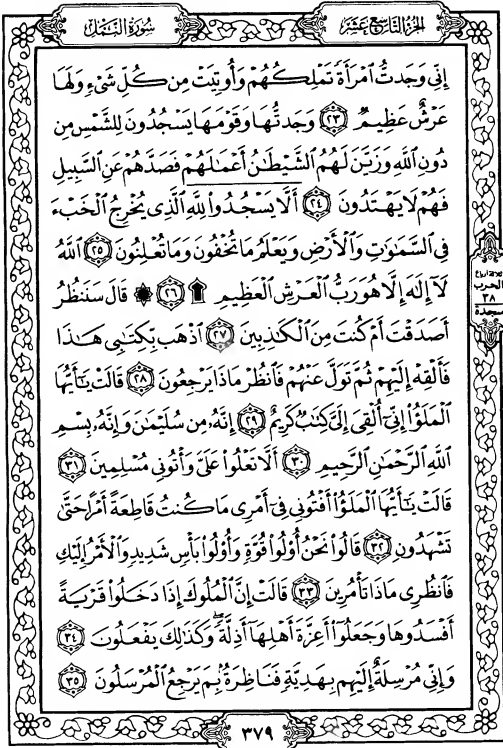 سُورَةُ النَّمْلِ
الجُزْءُ التَّاسِعَ عَشَرَ
إِنِّي وَجَدتُّ ٱمْرَأَةً تَمْلِكُهُمْ وَأُوتِيَتْ مِن كُلِّ شَيْءٍ وَلَهَا
عَرْشٌ عَظِيمٌ ٢٣ وَجَدتُّهَا وَقَوْمَهَا يَسْجُدُونَ لِلشَّمْسِ مِن
دُونِ ٱللَّهِ وَزَيَّنَ لَهُمُ ٱلشَّيْطَٰنُ أَعْمَٰلَهُمْ فَصَدَّهُمْ عَنِ ٱلسَّبِيلِ
فَهُمْ لَا يَهْتَدُونَ ٢٤ أَلَّا يَسْجُدُوا۟ لِلَّهِ ٱلَّذِي يُخْرِجُ ٱلْخَبْءَ
فِي ٱلسَّمَٰوَٰتِ وَٱلْأَرْضِ وَيَعْلَمُ مَا تُخْفُونَ وَمَا تُعْلِنُونَ ٢٥ ٱللَّهُ
لَآ إِلَٰهَ إِلَّا هُوَ رَبُّ ٱلْعَرْشِ ٱلْعَظِيمِ ۩ ٢٦ ۞ قَالَ سَنَنظُرُ
أَصَدَقْتَ أَمْ كُنتَ مِنَ ٱلْكَٰذِبِينَ ٢٧ ٱذْهَب بِّكِتَٰبِي هَٰذَا
فَأَلْقِهْ إِلَيْهِمْ ثُمَّ تَوَلَّ عَنْهُمْ فَٱنظُرْ مَاذَا يَرْجِعُونَ ٢٨ قَالَتْ يَٰٓأَيُّهَا
ٱلْمَلَؤُا۟ إِنِّيٓ أُلْقِيَ إِلَيَّ كِتَٰبٌ كَرِيمٌ ٢٩ إِنَّهُۥ مِن سُلَيْمَٰنَ وَإِنَّهُۥ بِسْمِ
ٱللَّهِ ٱلرَّحْمَٰنِ ٱلرَّحِيمِ ٣٠ أَلَّا تَعْلُوا۟ عَلَيَّ وَأْتُونِي مُسْلِمِينَ ٣١
قَالَتْ يَٰٓأَيُّهَا ٱلْمَلَؤُا۟ أَفْتُونِي فِيٓ أَمْرِي مَا كُنتُ قَاطِعَةً أَمْرًا حَتَّىٰ
تَشْهَدُونِ ٣٢ قَالُوا۟ نَحْنُ أُو۟لُوا۟ قُوَّةٍ وَأُو۟لُوا۟ بَأْسٍ شَدِيدٍ وَٱلْأَمْرُ إِلَيْكِ
فَٱنظُرِي مَاذَا تَأْمُرِينَ ٣٣ قَالَتْ إِنَّ ٱلْمُلُوكَ إِذَا دَخَلُوا۟ قَرْيَةً
أَفْسَدُوهَا وَجَعَلُوٓا۟ أَعِزَّةَ أَهْلِهَآ أَذِلَّةً ۖ وَكَذَٰلِكَ يَفْعَلُونَ ٣٤
وَإِنِّي مُرْسِلَةٌ إِلَيْهِم بِهَدِيَّةٍ فَنَاظِرَةٌۢ بِمَ يَرْجِعُ ٱلْمُرْسَلُونَ ٣٥
ثلاثة أرباع
الحزب
٣٨
سجدة
٣٧٩